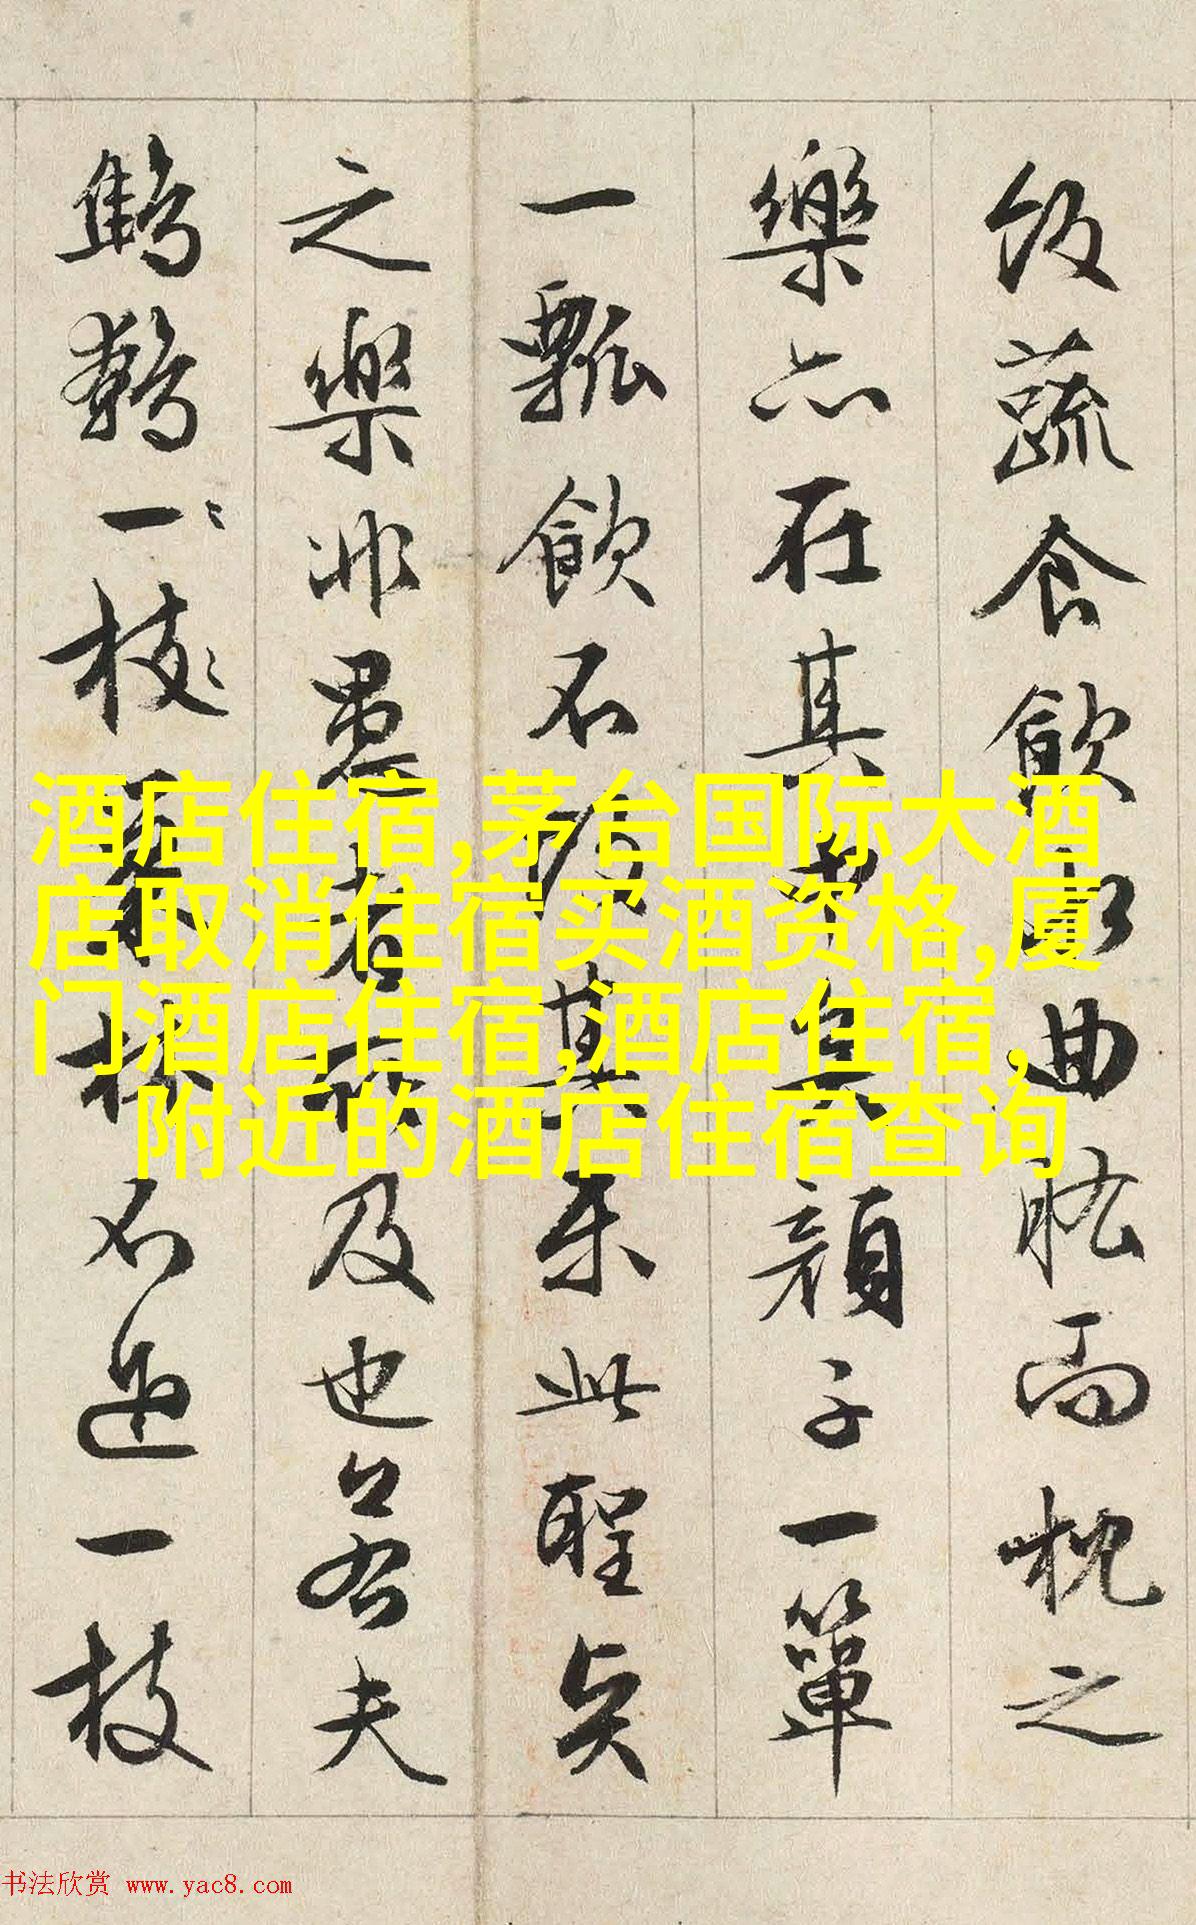 飯蔬食飲水曲肱而枕之
樂亦在其中矣顏子一簞
一瓢飲不改其樂此聖賢
之樂非愚者所及也若夫
鷦鷯一枝巢林不過一枝
酒店住宿,茅台国际大酒
店取消住宿买酒资格,厦
门酒店住宿,酒店住宿,
附近的酒店住宿查询
书法欣赏 www.yac8.com